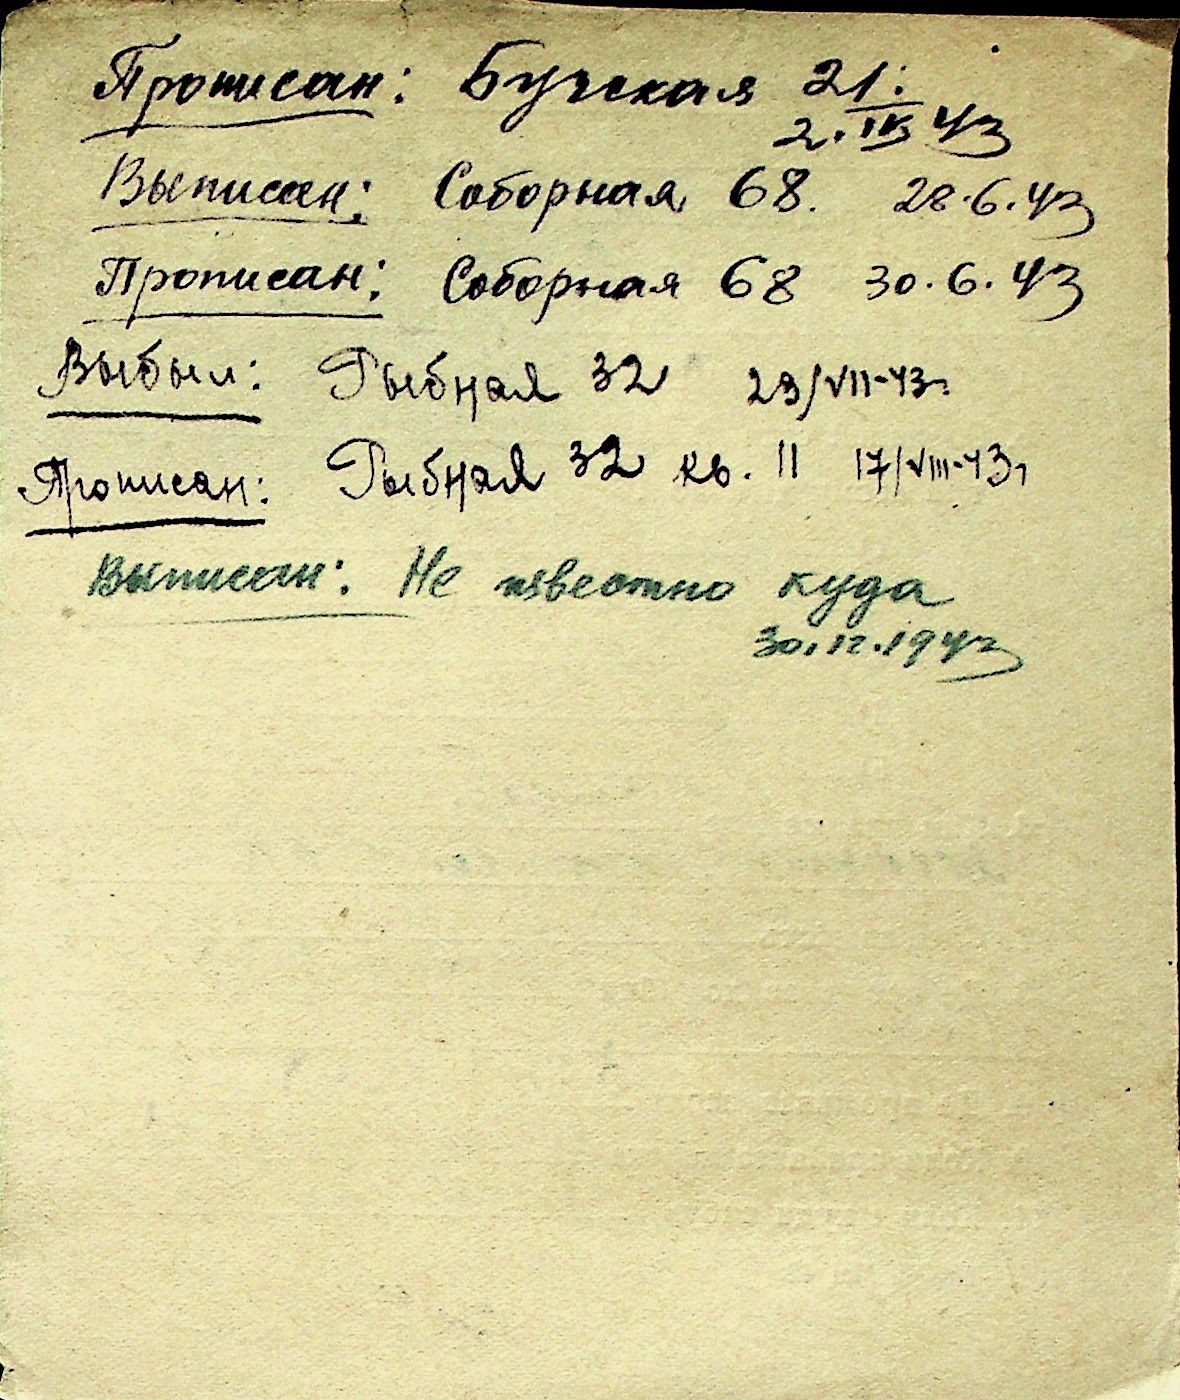 Прописан: Бучская 21.
2.IV 43
Выписан: Соборная 68. 28.6.43
Прописан: Соборная 68 30.6.43
Выбыл: Рыбная 32 29/VII-43г.
Прописан: Рыбная 32 кв. 11 17/VIII-43г
Выписан: Не известно куда
30.12.1943